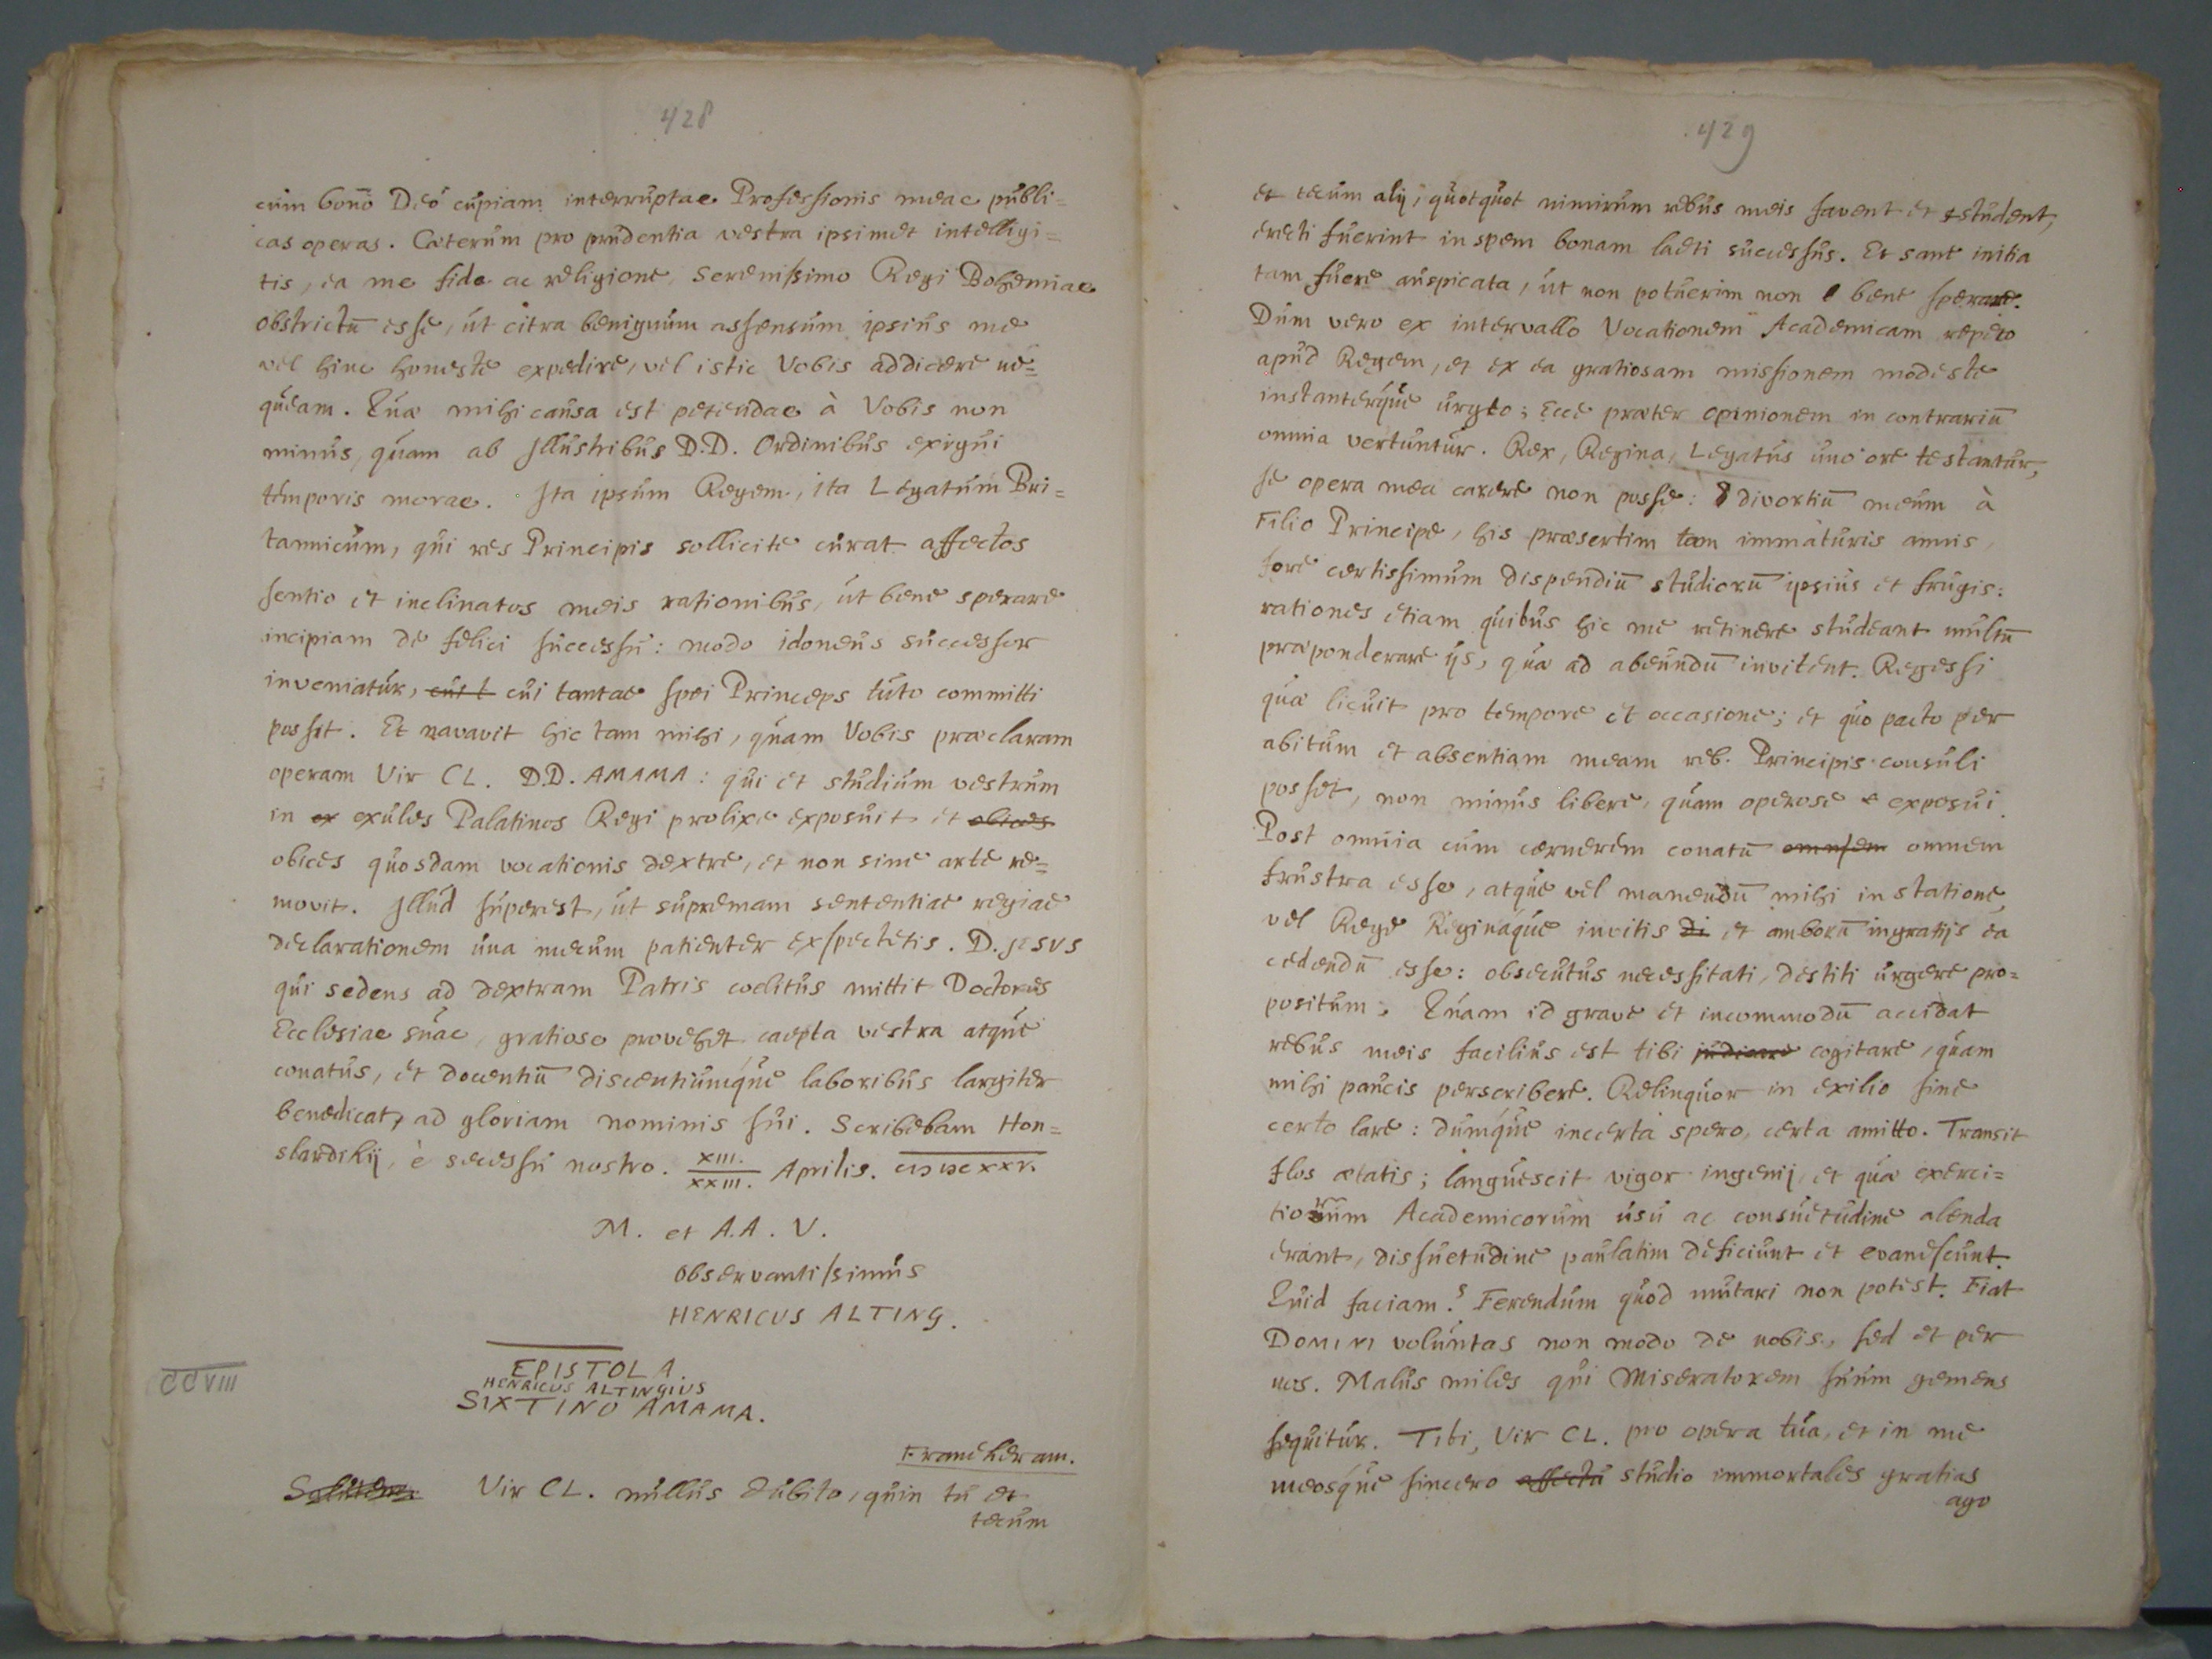 428
cum bono Deo cupiam interruptae Professionis meae publi=
cas operas. Caeterum pro prudentia vestra ipsimet intelligi=
tis, ea me fide ac religione, Serenissimo Regi Bohemiae
obstrictū esse, ut citra benignum assensum ipsius me
vel hinc honeste expedire, vel istic Vobis addicere ne=
queam. Quae mihi causa est petendae à Vobis non
minus, quam ab Illustribus D.D. Ordinibus exigui
temporis morae. Ita ipsum Regem, ita Legatum Bri=
tannicum, qui res Principis sollicite curat affectos
sentio et inclinatos meis rationibus, ut bene sperare
incipiam de felici successu: modo idoneus successor
inveniatur, cui t cui tantae spei Princeps tuto committi
possit. Et navavit hic tam mihi, quam Vobis praeclaram
operam Vir CL. D.D. AMAMA: qui et studium vestrum
in ex exules Palatinos Regi prolixe exposuit et obices
obices quosdam vocationis dextre, et non sine arte re=
movit. Illud superest, ut supremam sententiae regiae
declarationem una mecum patienter exspectetis. D. JESVS
qui sedens ad dextram Patris coelitus mittit Doctores
Ecclesiae suae, gratiose provehet caepta vestra atque
conatus, et docentiū discentiumque laboribus largiter
benedicat, ad gloriam nominis sui. Scribebam Hon=
slardikij, è secessu nostro. XIII./XXIII. Aprilis. cıɔ ıɔc xxv.
M. et A.A. V.
Observantissimus
HENRICUS ALTING.
CCVIII
EPISTOLA.
HENRICUS ALTINGIUS
SIXTINO AMAMA.
Franekeram.
Salutem. Vir CL. nullus dubito, quin tu et
tecum
429
et tecum alij, quotquot nimirum rebus meis favent et student,
erecti fuerint in spem bonam laeti successus. Et sane initia
tam fuere auspicata, ut non potuerim non bene sperare.
Dum vero ex intervallo Vocationem Academicam repeto
apud Regem, et ex ea gratiosam missionem modeste
instanterque urgeo; Ecce praeter opinionem in contrariū
omnia vertuntur. Rex, Regina, Legatus uno ore testantur,
se opera mea carere non posse: divortiū meum à
Filio Principe, his praesertim tam immaturis annis,
fore certissimum dispendiū studiorū ipsius et frugis:
rationes etiam quibus hic me retinere studeant multū
praeponderare ijs, quae ad abeundū invitent. Regessi
quae licuit pro tempore et occasione; et quo pacto per
abitum et absentiam meam reb. Principis consuli
posset, non minus libere, quam operose e exposui.
Post omnia cum cernerem conatū omnem omnem
frustra esse, atque vel manendū mihi in statione,
vel Rege Reginaque invitis di et amborū ingratijs ea
cedendū esse: obsecutus necessitati, destiti urgere pro=
positum. Quam id grave et incommodū accidat
rebus meis facilius est tibi judicare cogitare, quam
mihi paucis perscribere. Relinquor in exilio sine
certo lare: dumque incerta spero, certa amitto. Transit
flos aetatis; languescit vigor ingenij, et quae exerci=
tiorum Academicorum usu ac consuetudine alenda
erant, dissuetudine paulatim deficiunt et evanescunt.
Quid faciam? Ferendum quod mutari non potest. Fiat
DOMINI voluntas non modo de nobis, sed et per
nos. Malus miles qui Miseratorem suum gemens
sequitur. Tibi, Vir CL. pro opera tua, et in me
meosque sincero affectu studio immortales gratias
ago